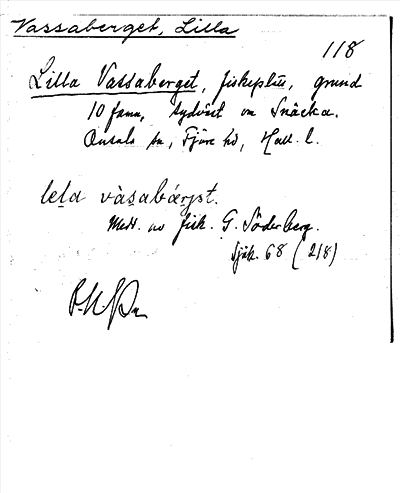 Vassaberget, Lilla
118
Lilla Vassaberget, fiskeplats, grund
10 famn, sydväst om Snäcka.
Onsala sn, Fjäre hd, Hall. l.
lela vàsabárjət.
Medd. av fisk. G. Söderberg.
Sjök. 68 (218)